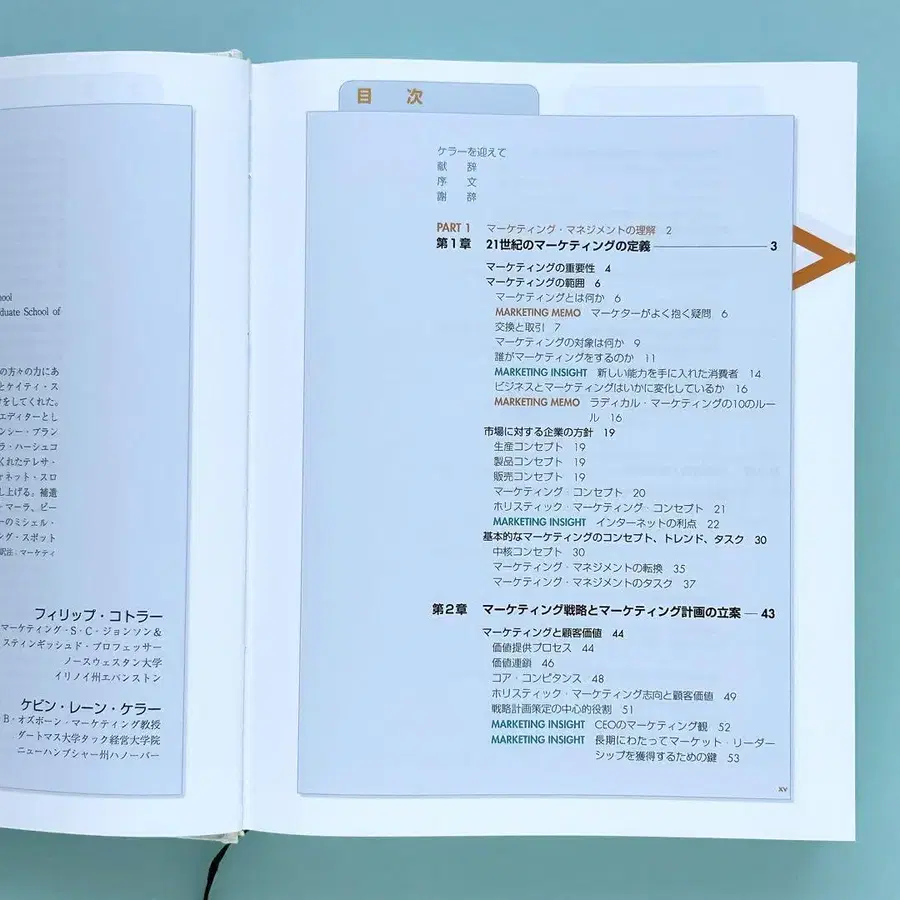 ool
duate School of
の方々の力にあ
とケイティ・ス
をしてくれた。
エディターとし
ンシー・ブラン
ラ・ハーシュコ
くれたテレサ・
ャネット・スロ
し上げる。補遺
・マーラ、ピー
ーのミシェル・
ング・スポット
訳注：マーケティ
フィリップ・コトラー
マーケティング・S・C・ジョンソン＆
スティングィッシュド・プロフェッサー
ノースウェスタン大学
イリノイ州エバンストン
ケビン・レーン・ケラー
B・オズボーン・マーケティング教授
ダートマス大学タック経営大学院
ニューハンプシャー州ハノーバー
目 次
ケラーを迎えて
献 辞
序 文
謝 辞
PART 1 マーケティング・マネジメントの理解 2
第1章 21世紀のマーケティングの定義 3
マーケティングの重要性 4
マーケティングの範囲 6
マーケティングとは何か 6
MARKETING MEMO マーケターがよく抱く疑問 6
交換と取引 7
マーケティングの対象は何か 9
誰がマーケティングをするのか 11
MARKETING INSIGHT 新しい能力を手に入れた消費者 14
ビジネスとマーケティングはいかに変化しているか 16
MARKETING MEMO ラディカル・マーケティングの10のルー
ル 16
市場に対する企業の方針 19
生産コンセプト 19
製品コンセプト 19
販売コンセプト 19
マーケティング・コンセプト 20
ホリスティック・マーケティング・コンセプト 21
MARKETING INSIGHT インターネットの利点 22
基本的なマーケティングのコンセプト、トレンド、タスク 30
中核コンセプト 30
マーケティング・マネジメントの転換 35
マーケティング・マネジメントのタスク 37
第2章 マーケティング戦略とマーケティング計画の立案 43
マーケティングと顧客価値 44
価値提供プロセス 44
価値連鎖 46
コア・コンピタンス 48
ホリスティック・マーケティング志向と顧客価値 49
戦略計画策定の中心的役割 51
MARKETING INSIGHT CEOのマーケティング観 52
MARKETING INSIGHT 長期にわたってマーケット・リーダー
シップを獲得するための鍵 53
xv